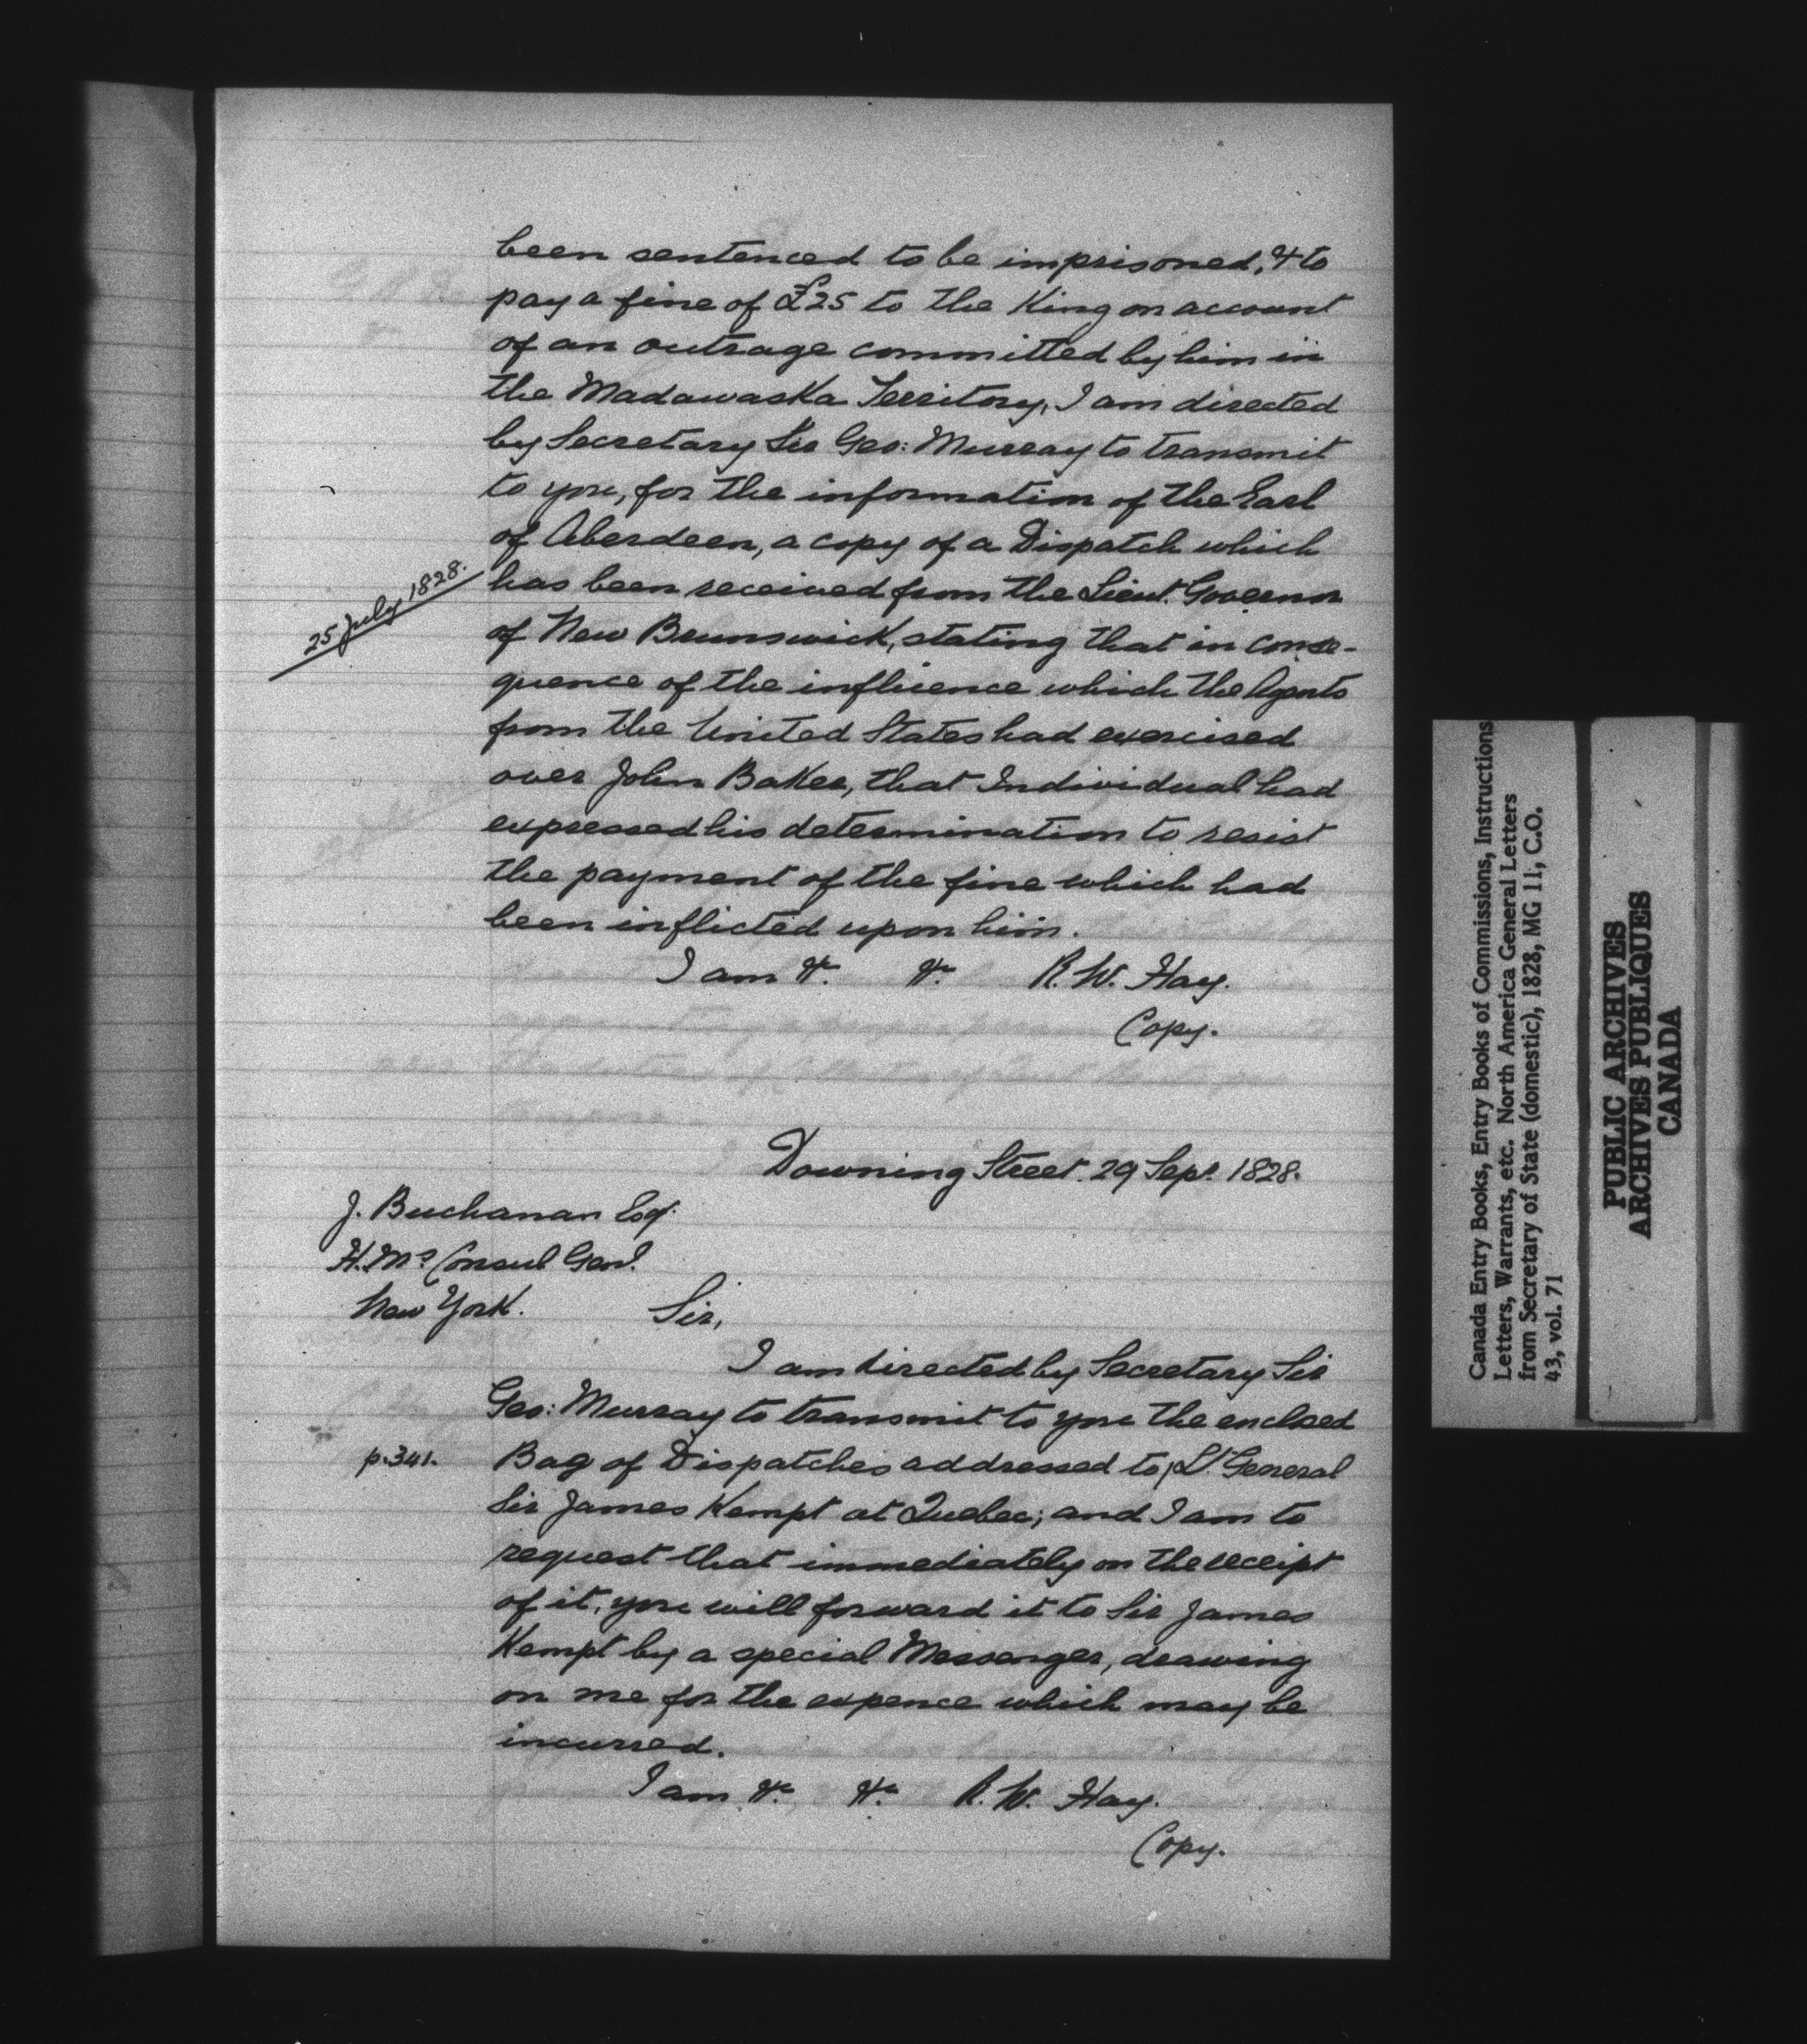 been sentenced to be imprisoned, & to
pay a fine of £25 to the King on account
of an outrage committed by him in
the Madawaska Territory, I am directed
by Secretary Sir Geo: Murray to transmit
to you, for the information of the Earl
of Aberdeen, a copy of a Dispatch which
25 July 1828.
has been received from the Lieut. Governor
of New Brunswick, stating that in conse-
quence of the influence which the Agents
from the United States had exercised
over John Baker, that Individual had
expressed his determination to resist
the payment of the fine which had
been inflicted upon him.
I am &c. &c. R. W. Hay.
Copy.
Downing Street. 29 Sepr. 1828.
J. Buchanan Esq.
H. Ms Consul Genl.
New York.
Sir,
I am directed by Secretary Sir
Geo: Murray to transmit to you the enclosed
p. 341.
Bag of Dispatches addressed to Lt. General
Sir James Kempt at Quebec; and I am to
request that immediately on the receipt
of it, you will forward it to Sir James
Kempt by a special Messenger, drawing
on me for the expence which may be
incurred.
I am &c. &c. R. W. Hay.
Copy.
Canada Entry Books, Entry Books of Commissions, Instructions
Letters, Warrants, etc. North America General Letters
from Secretary of State (domestic), 1828, MG 11, C.O.
43, vol. 71
PUBLIC ARCHIVES
ARCHIVES PUBLIQUES
CANADA